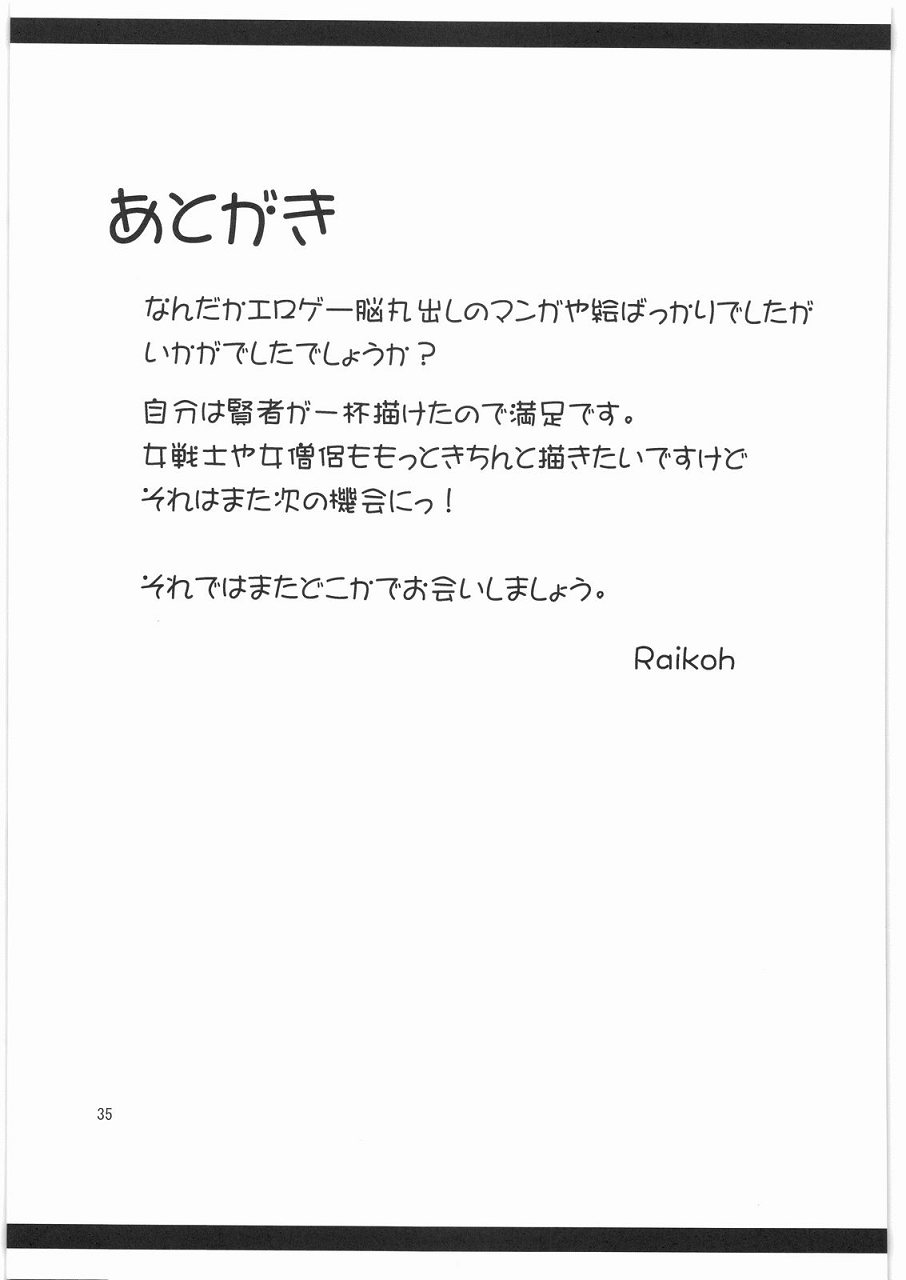 あとがき
なんだかエロゲー脳丸出しのマンガや絵ばっかりでしたが
いかがでしたでしょうか？
自分は賢者が一杯描けたので満足です。
女戦士や女僧侶ももっときちんと描きたいですけど
それはまた次の機会にっ！
それではまたどこかでお会いしましょう。
Raikoh
35